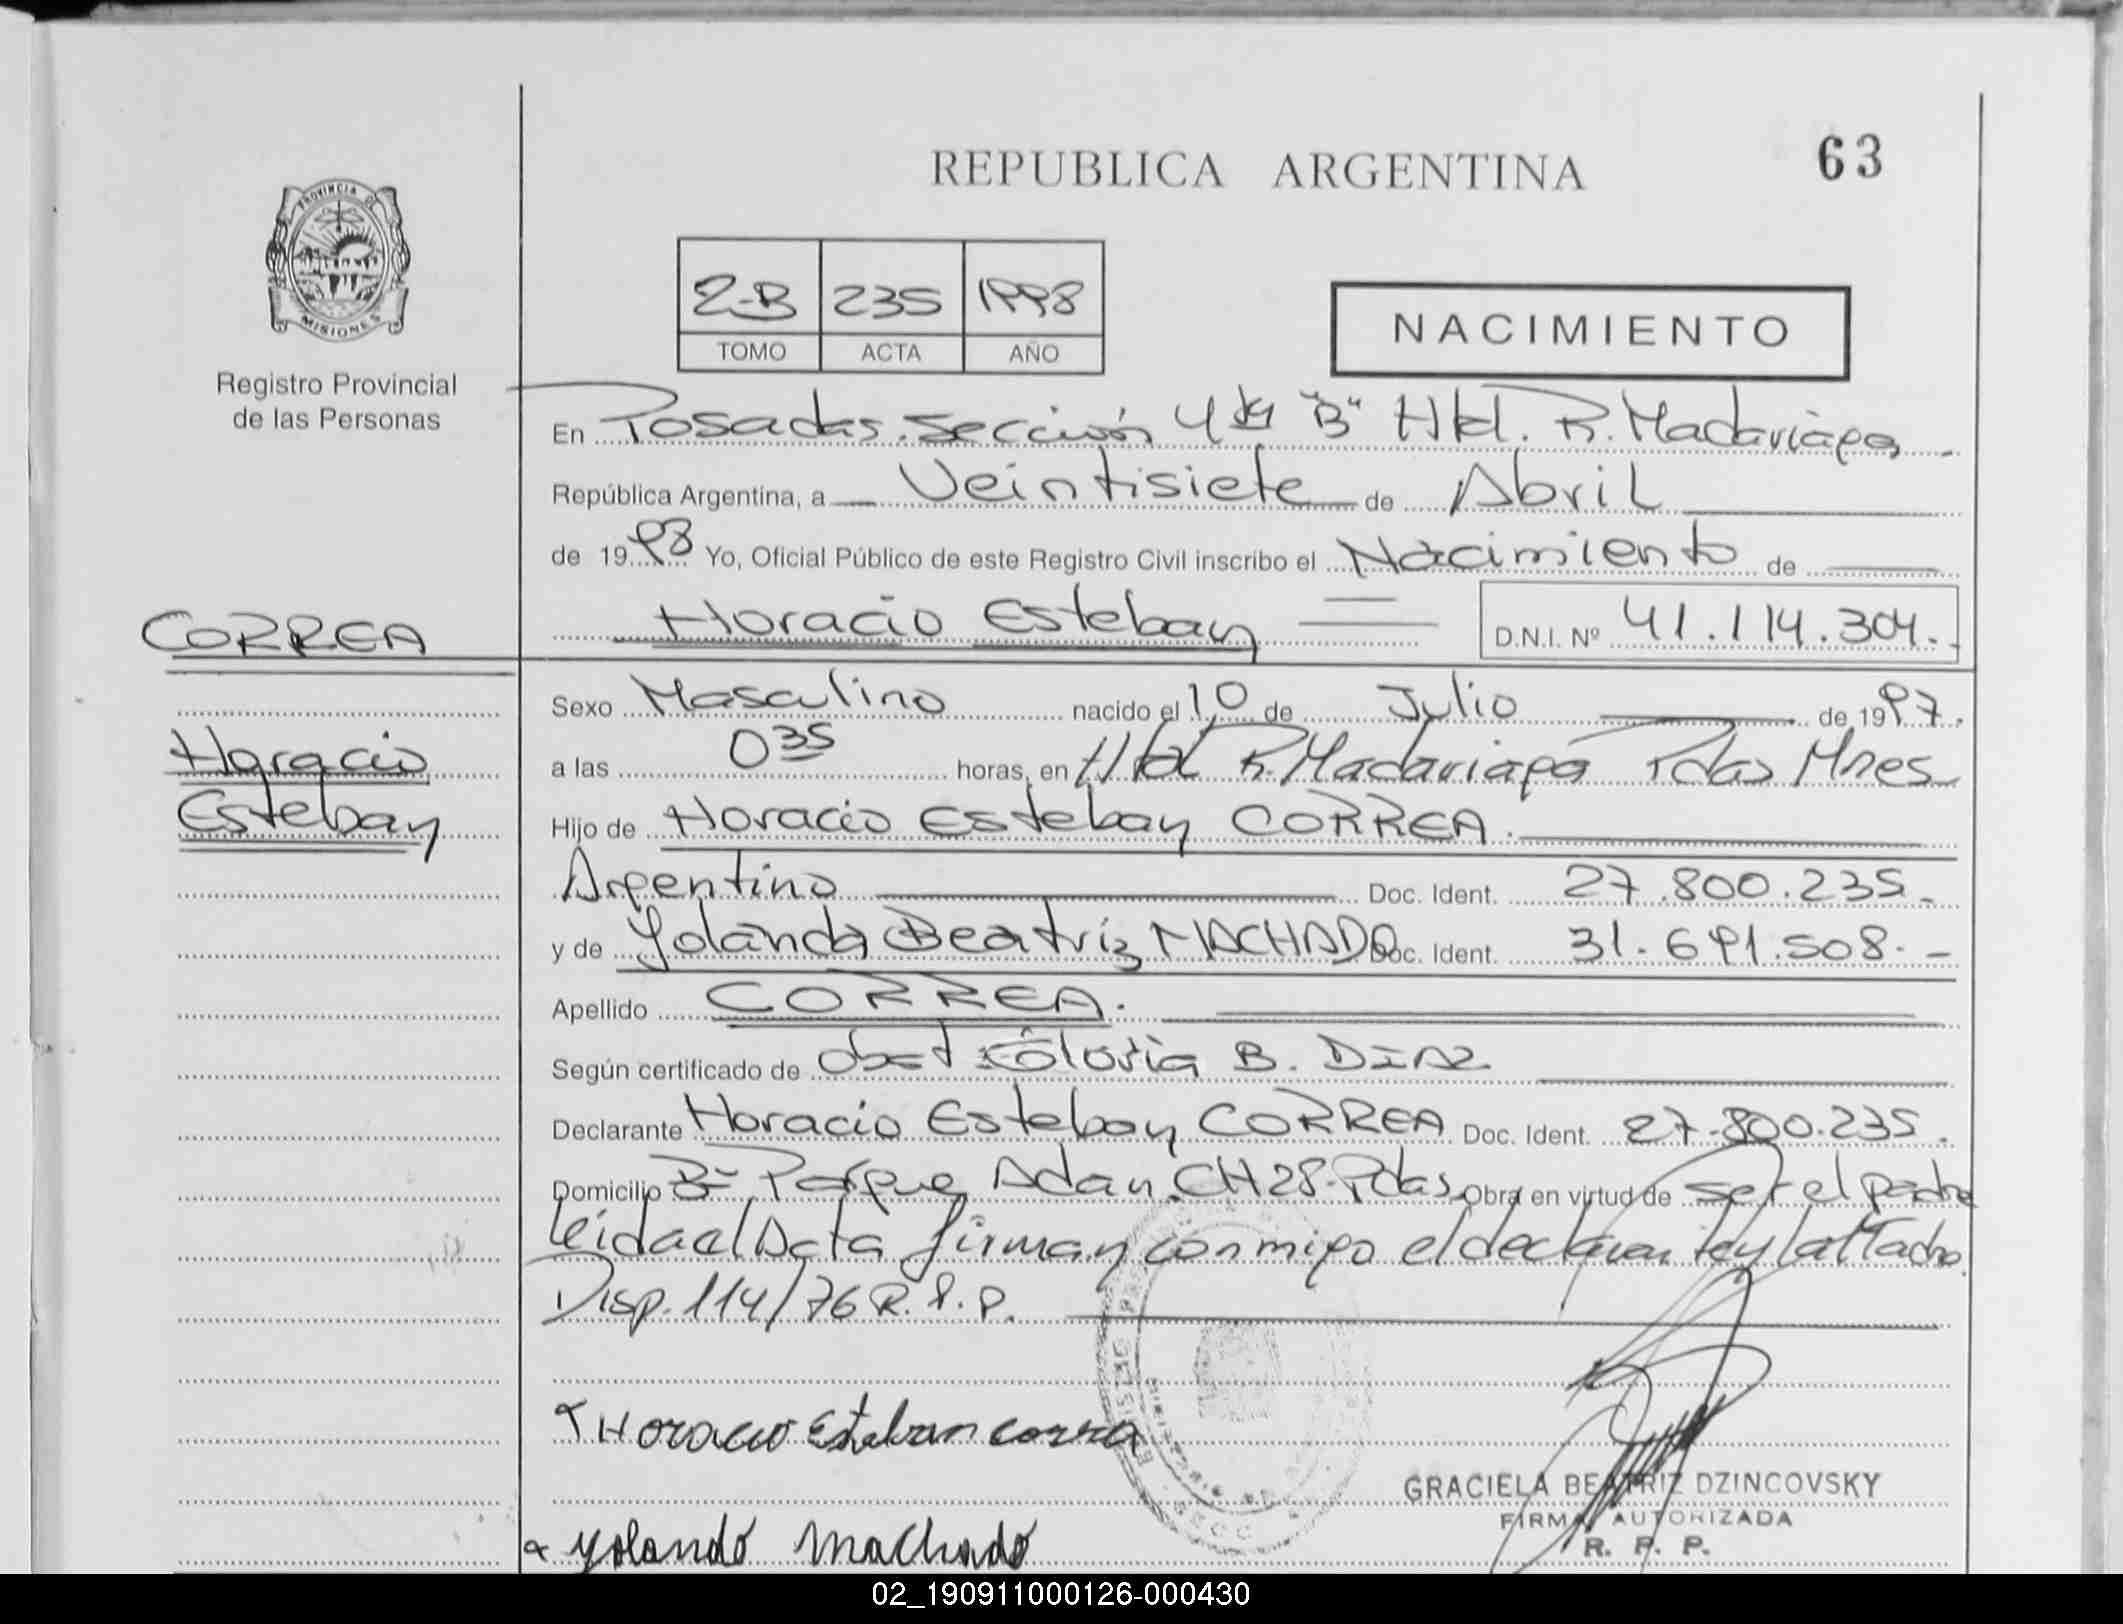 REPUBLICA ARGENTINA
63
PROVINCIA DE
MISIONES
Registro Provincial
de las Personas
2-B 235 1998
TOMO ACTA AÑO
NACIMIENTO
En Posadas. Sección 4ta "B" Htal. R. Madariaga
República Argentina, a Veintisiete de Abril
de 1998 Yo, Oficial Público de este Registro Civil inscribo el Nacimiento de
CORREA
Horacio Esteban
Horacio Esteban D.N.I. Nº 41.114.304.-
Sexo Masculino nacido el 10 de Julio de 1997.
a las 0 35 horas, en Htal R. Madariaga Pdas Mnes
Hijo de Horacio Esteban CORREA.
Argentino Doc. Ident. 27.800.235.-
y de Yolanda Beatriz MACHADO Doc. Ident. 31.691.508.-
Apellido CORREA.
Según certificado de Obst Gloria B. DIAZ
Declarante Horacio Esteban CORREA Doc. Ident. 27.800.235.
Domicilio Bº Parque Adan. CH 28. Pdas. Obra en virtud de ser el padre
leida el Acta firman conmigo el declarante y la Madre
Disp. 114/76 R.P.P.
Horacio Esteban correa
Yolanda Machado
GRACIELA BEATRIZ DZINCOVSKY
FIRMA AUTORIZADA
R. P. P.
02_190911000126-000430